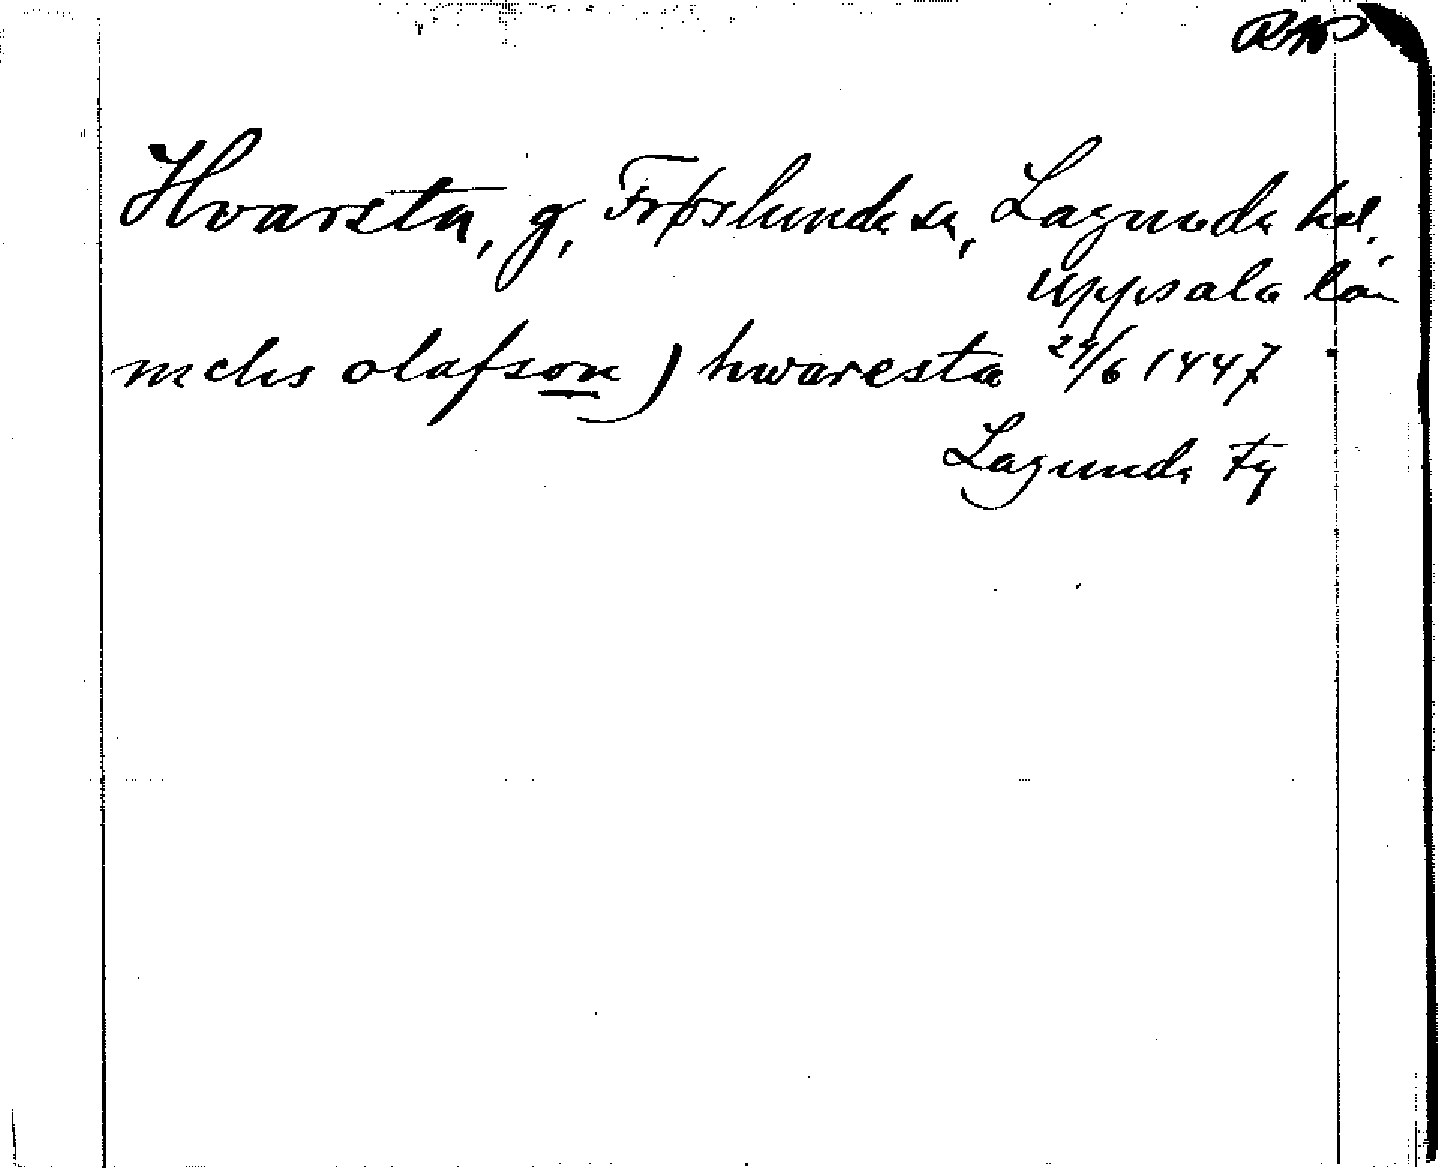 Hvarsta, g, Fröslunda sn, Lagunda hd.
Uppsala län
niclis olafson ) hwaresta 24/6 1447
Lagunda Fg